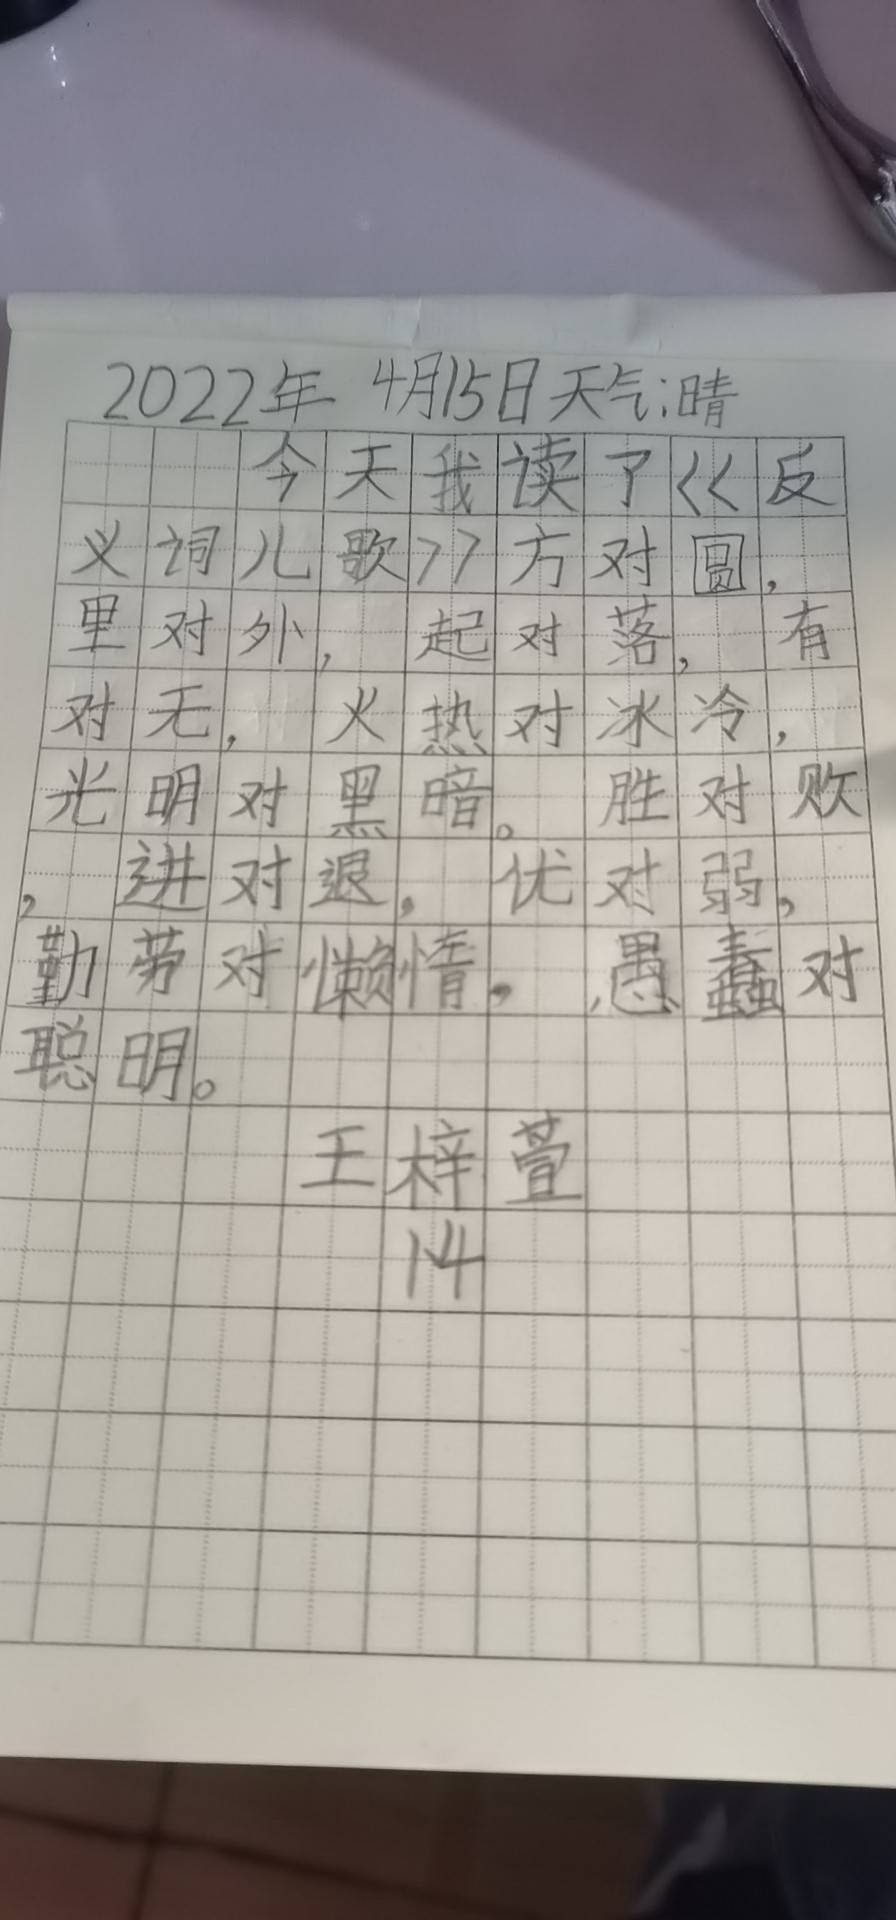 2022年 4月15日天气:晴
今天我读了<<反
义词儿歌>>方对圆,
里对外, 起对落, 有
对无, 火热对冰冷,
光明对黑暗。 胜对败
, 进对退, 优对弱,
勤劳对懒惰, 愚蠢对
聪明。
王梓萱
14